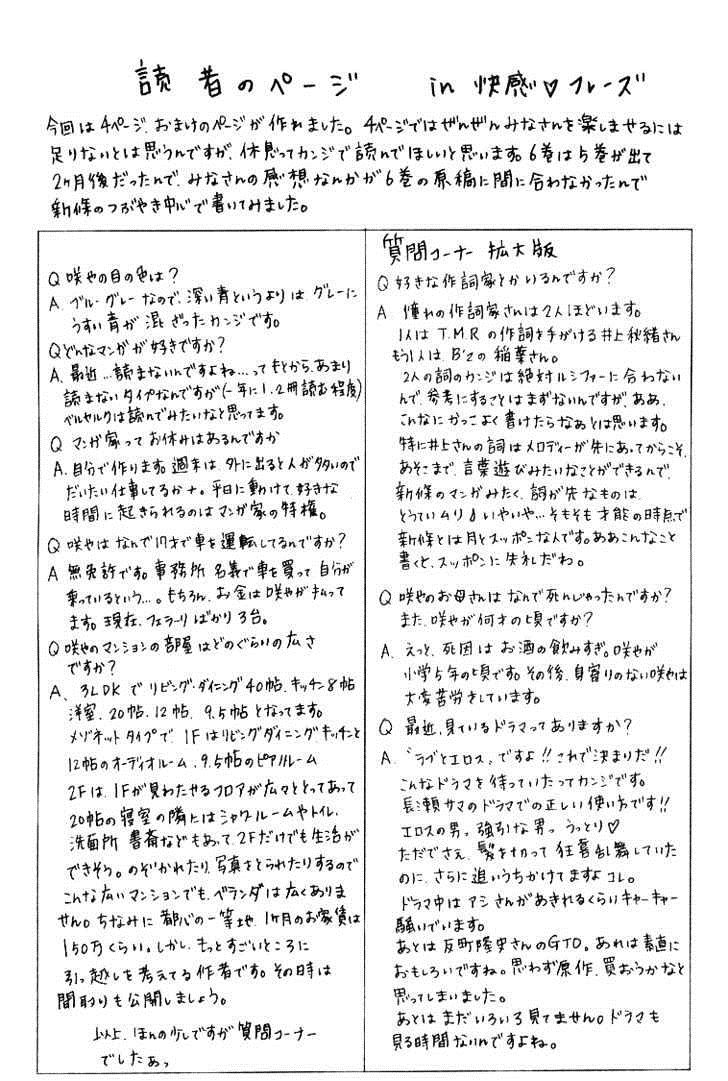 読者のページ in 快感♡フレーズ
今回は4ページ、おまけのページが作れました。4ページではぜんぜんみなさんを楽しませるには
足りないとは思うんですが、休憩ってカンジで読んでほしいと思います。6巻は5巻が出て
2ヶ月後だったんで、みなさんの感想なんかが6巻の原稿に間に合わなかったんで
新條のつぶやき中心で書いてみました。
Q 咲也の目の色は?
A. ブルーグレーなので、深い青というよりはグレーに
うすい青が混ざったカンジです。
Qどんなマンガが好きですか?
A. 最近…読まないんですよね…ってもとから、あまり
読まないタイプなんですが(一年に1、2冊読む程度)
ベルセルクは読んでみたいなと思ってます。
Q マンガ家ってお休みはあるんですか
A. 自分で作ります。週末は、外に出ると人が多いので
だいたい仕事してるかナ。平日に動けて、好きな
時間に起きられるのはマンガ家の特権。
Q 咲也はなんで17才で車を運転してるんですか?
A 無免許です。事務所名義で車を買って自分が
乗っているという…。もちろん、お金は咲也が払って
ます。現在、フェラーリばかり3台。
Q 咲也のマンションの部屋はどのぐらいの広さ
ですか?
A、3LDKでリビング・ダイニング40帖、キッチン8帖
洋室、20帖、12帖、9.5帖となってます。
メゾネットタイプで、1Fはリビングダイニングキッチンと
12帖のオーディオルーム、9.5帖のピアノルーム
2Fは、1Fが見わたせるフロアが広々ととってあって
20帖の寝室の隣にはシャワールームやトイレ、
洗面所、書斎などもあって、2Fだけでも生活が
できそう。のぞかれたり、写真をとられたりするので
こんな広いマンションでも、ベランダは広くありま
せん。ちなみに都心の一等地、1ヶ月のお家賃は
150万くらい。しかし、もっとすごいところに
引っ越しを考えてる作者です。その時は
間取りも公開しましょう。
以上、ほんの少しですが質問コーナー
でしたぁっ
質問コーナー 拡大版
Q 好きな作詞家とかいるんですか?
A. 憧れの作詞家さんは2人ほどいます。
1人はT.M.Rの作詞を手がける井上秋緒さん
もう1人はB'zの稲葉さん。
2人の詞のカンジは絶対ルシファーに合わない
んで、参考にすることはまずないんですが、ああ、
こんなにかっこよく書けたらなぁとは思います。
特に井上さんの詞はメロディーが先にあってからこそ、
あそこまで、言葉遊びみたいなことができるんで、
新條のマンガみたく、詞が先なものは、
とうていムリ♪いやいや…そもそも才能の時点で
新條とは月とスッポンなんです。ああこんなこと
書くと、スッポンに失礼だわ。
Q 咲也のお母さんはなんで死んじゃったんですか?
また、咲也が何才の頃ですか?
A. えっと、死因はお酒の飲みすぎ。咲也が
小学5年の頃です。その後、身寄りのない咲也は
大変苦労をしています。
Q 最近、見ているドラマってありますか?
A. 「ラブとエロス」ですよ!!これで決まりだ!!
こんなドラマを待っていたってカンジです。
長瀬サマのドラマでの正しい使い方です!!
エロスの男っ 強引な男っ うっとり♡
ただでさえ、髪を切って狂喜乱舞していた
のに、さらに追いうちかけてますよコレ。
ドラマ中はアシさんがあきれるくらいキャーキャー
騒いでいます。
あとは反町隆史さんのGTO。あれは素直に
おもしろいですね。思わず原作、買おうかなと
思ってしまいました。
あとはまだいろいろ見てません。ドラマも
見る時間ないんですよね。